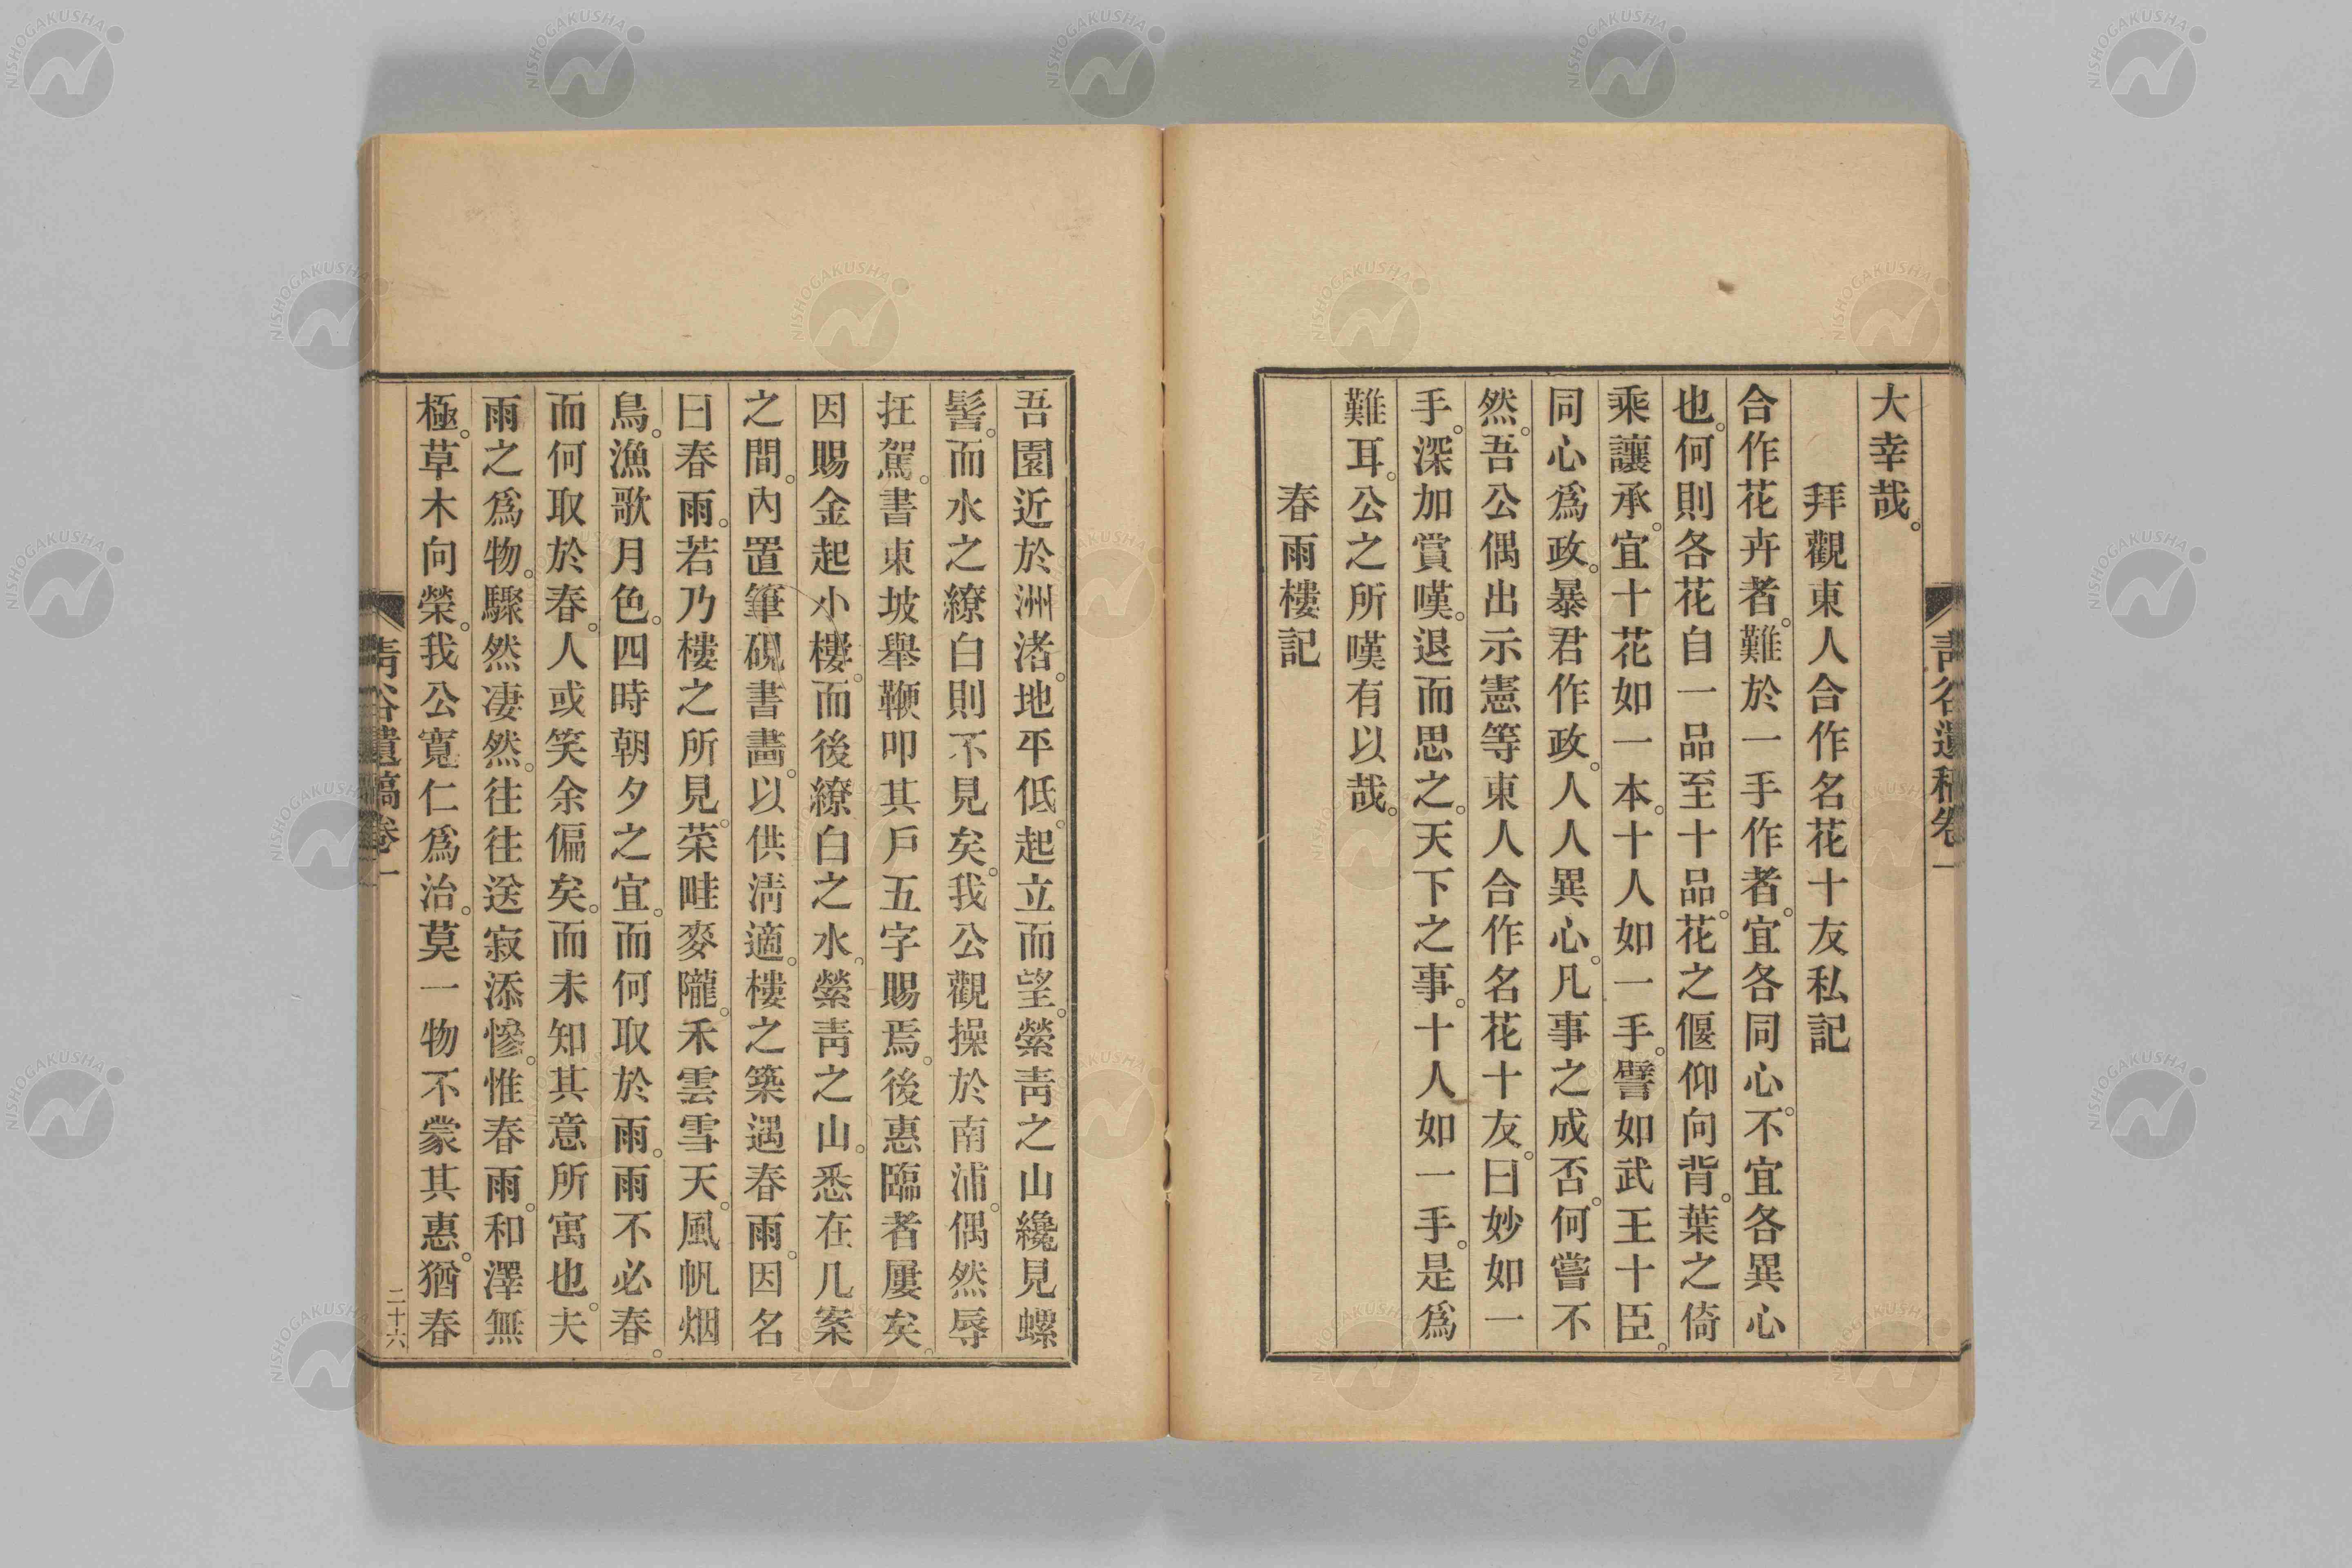 大幸哉。
拜觀東人合作名花十友私記
合作花卉者。難於一手作者。宜各同心。不宜各異心
也。何則各花自一品至十品。花之偃仰向背。葉之倚
乘讓承。宜十花如一本。十人如一手。譬如武王十臣。
同心爲政。暴君作政。人人異心。凡事之成否。何嘗不
然。吾公偶出示憲等東人合作名花十友。曰妙如一
手。深加賞嘆。退而思之。天下之事。十人如一手。是爲
難耳。公之所嘆有以哉。
春雨樓記
靑谷遺稿卷一
吾園近於洲渚。地平低。起立而望。縈靑之山纔見螺
髻。而水之繚白則不見矣。我公觀操於南浦。偶然辱
抂駕。書東坡舉鞭叩其戶五字賜焉。後惠臨者屢矣。
因賜金起小樓。而後繚白之水。縈靑之山。悉在几案
之間。內置筆硯書畵。以供淸適。樓之築遇春雨。因名
曰春雨。若乃樓之所見。菜畦麥隴。禾雲雪天。風帆烟
鳥。漁歌月色。四時朝夕之宜。而何取於雨。雨不必春。
而何取於春。人或笑余偏矣。而未知其意所寓也。夫
雨之爲物。驟然凄然。往往送寂添慘。惟春雨。和澤無
極。草木向榮。我公寬仁爲治。莫一物不蒙其惠。猶春
靑谷遺稿卷一
二十六
NISHOGAKUSHA